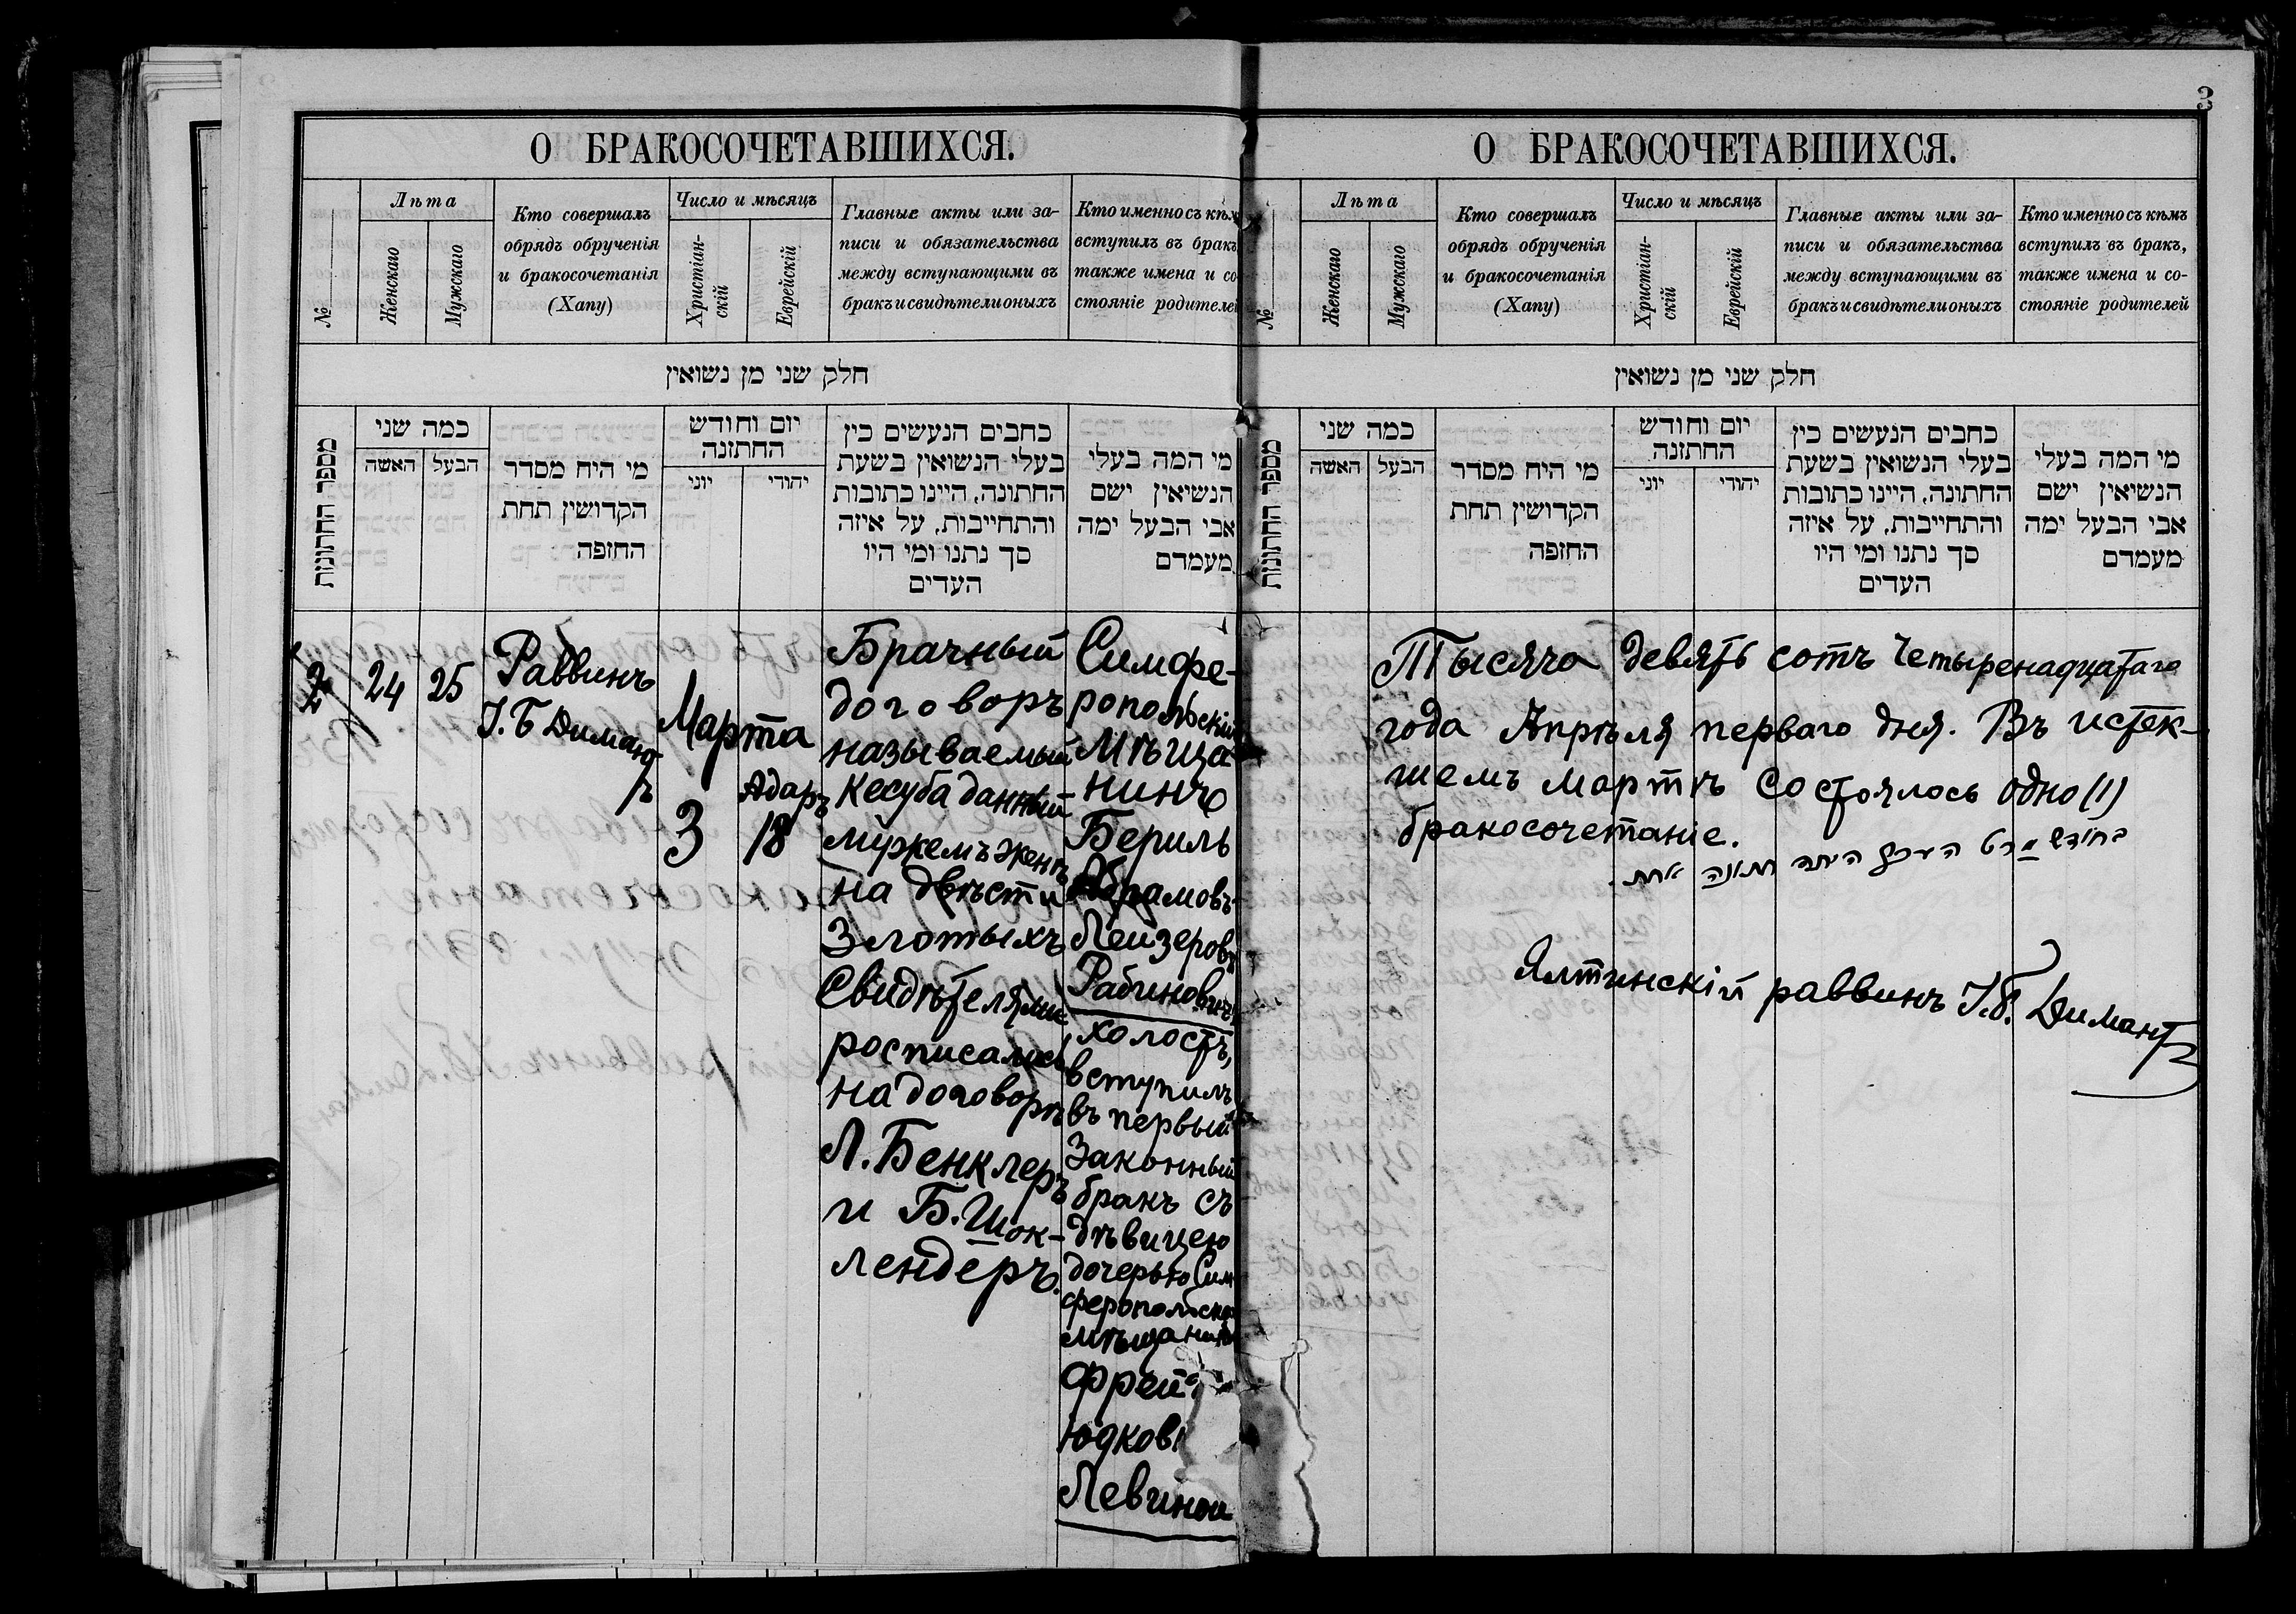 3
О БРАКОСОЧЕТАВШИХСЯ.
№
Лѣта
Женскаго
Мужскаго
Кто совершалъ
обрядъ обрученія
и бракосочетанія
(Хапу)
Число и мѣсяцъ
Христіан-
скій
Еврейскій
Главные акты или за-
писи и обязательства
между вступающими въ
бракъ и свидѣтели оныхъ
Кто именно съ кѣмъ
вступилъ въ бракъ
также имена и со
стояніе родителей
חלק שני מן נשואין
מספר החתונות
כמה שני
האשה
הבעל
מי היח מסדר
הקדושין תחת
החזפה
יום וחודש
החתזנה
יוני
יהודי
כחבים הנעשים כין
בעלי הנשואין בשעת
החתונה, היינו כתובות
והתחייבות, על איזה
סך נתנו ומי היו
העדים
מי המה בעלי
הנשיאין ישם
אבי הבעל ימה
מעמדם
2
24
25
Раввинъ
І. Б Димант
ъ
Марта
3
Адаръ
18
Брачный
договоръ
называемый
Кесуба данный
мужемъ женѣ
на двѣсти
Злотыхъ
Свидѣтелями
росписались
на договорѣ
Л. Бенклеръ
и Б. Шок-
лендеръ.
Симфе-
ропольскій
Мѣща
нинъ
Бериль
Абрамовъ-
Лейзеровъ
Рабиновичъ
холостъ,
вступилъ
въ первый
Законный
бракъ съ
дѣвицею
дочерью Сим
феропольскаго
мѣщанина
Фрей
Юдков
Левиной
О БРАКОСОЧЕТАВШИХСЯ.
№
Лѣта
Женскаго
Мужскаго
Кто совершалъ
обрядъ обрученія
и бракосочетанія
(Хапу)
Число и мѣсяцъ
Христіан-
скій
Еврейскій
Главные акты или за-
писи и обязательства
между вступающими въ
бракъ и свидѣтели оныхъ
Кто именно съ кѣмъ
вступилъ въ бракъ,
также имена и со-
стояніе родителей
חלק שני מן נשואין
מספר החתונות
כמה שני
האשה
הבעל
מי היח מסדר
הקדושין תחת
החזפה
יום וחודש
החתזנה
יוני
יהודי
כחבים הנעשים כין
בעלי הנשואין בשעת
החתונה, היינו כתובות
והתחייבות, על איזה
סך נתנו ומי היו
העדים
מי המה בעלי
הנשיאין ישם
אבי הבעל ימה
מעמדם
Тысяча девять сотъ четыренадцатаго
года Апрѣля перваго дня. Въ истек-
шемъ мартѣ состоялось одно (1)
бракосочетаніе.
בחודש מרט העבר היתה חתונה אחת.
Ялтинскій раввинъ І. Б. Димантъ